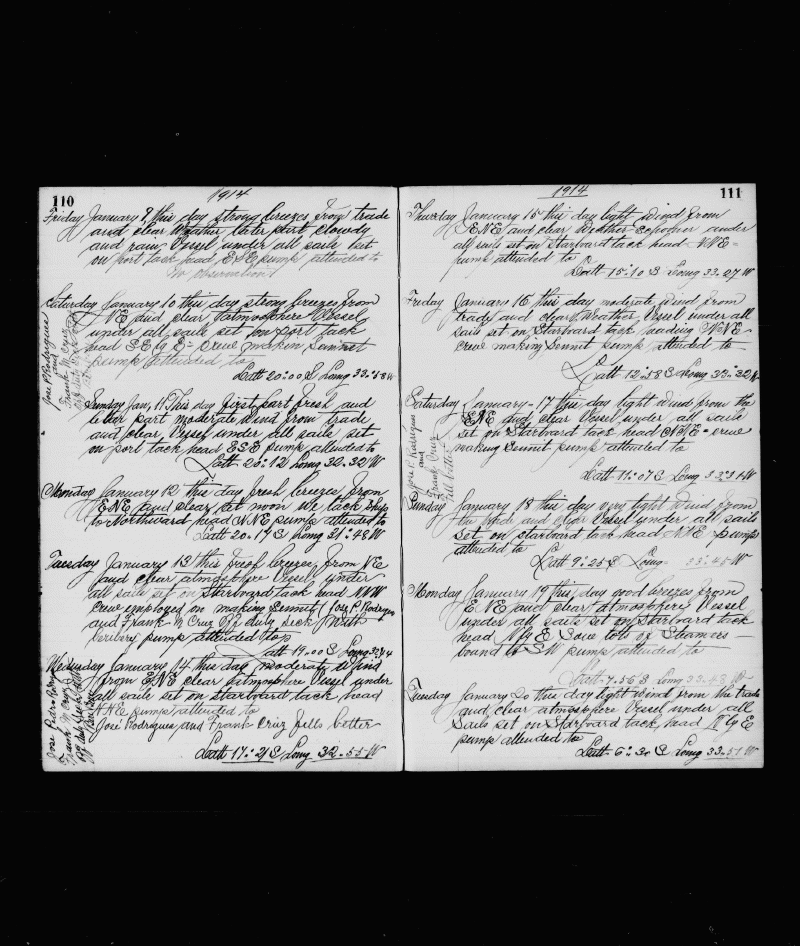 110
1914
Friday January 9 this day strong breezes from trade
and clear Weather later part clowdy
and rain Vessel under all sails set
on port tack head ESE pump attended to
no observation
Saturday January 10 this day strong breezes from
NE and clear tatmosphere Vessel
under all sails set on port tack
head SE by E crue makin Sennit
pump attended to
Latt 20:00 S Long 33:58 W
Jose P. Rodrigues
and
Frank N Cruz
Sunday Jan, 11 This day first part fresh and
later part moderate wind from trade
and clear Vessel under all sails set
on port tack head ESE pump attended to
Latt 20:12 Long 32.32 W
Monday January 12 this day fresh breezes from
ENE and clear at noon we tack Ship
to Northward head NNE pump attended to
Latt 20.17 S Long 31:48 W
Tuesday January 13 this fresh breezes from NE
and clear atmosphere Vessel under
all sails set on Starboard tack head NNW
Crew employed on making Sennit (Josy P Rodrigues
and Frank N Cruz off duty seek With
Beribery pump attended to
Latt 19.00 S Long 32:14
Wednesday January 14 this day moderate Wind
from ENE clear tatmosphere Vessel under
all sails set on starboard tack head
NNE pump attended to
José Rodrigues and Frank Cruz fells better
Latt 17:21 S Long 32.55 W
Jose Pedro Rodrigues
Frank N Cruz
off duty Seek With
Beri Beri
1914
111
Thursday January 15 this day light wind from
ENE and clear Weather under
all sails set on Starboard tack head NNE
pump attended to
Latt 15:10 S Long 33.27 W
Friday January 16 this day moderate wind from
trady and clear Weather, Vessel under all
sails set on Starboard tack heading NNE
Crue making Sennit pump attended to
Latt 12:58 S Long 33:32 W
Saturday January 17 this day light wind from the
ENE and clear Vessel under all sails
set on Starboard tack head NNE crue
making Sennit pump attended to
Latt 11:07 S Long 33:31 W
Jose P. Rodrigues
and
Frank Cruz
fell better
Sunday January 18 this day very light wind from
the trade and clear Vessel under all sails
set on starboard tack head NNE pump
attended to
Latt 9:25 S Long 33:45 W
Monday January 19 this day good breezes from
ENE and clear atmosphere Vessel
under all sails set on Starboard tack
head N by E Saw lots of Steamers
bound to SW pump attended to
Latt 7.56 S Long 33.48 W
Tuesday January 20 this day light wind from the trade
and clear atmosphere Vessel under all
Sails set on Starboard tack head N by E
pump attended to
Latt 6:30 S Long 33.51 W